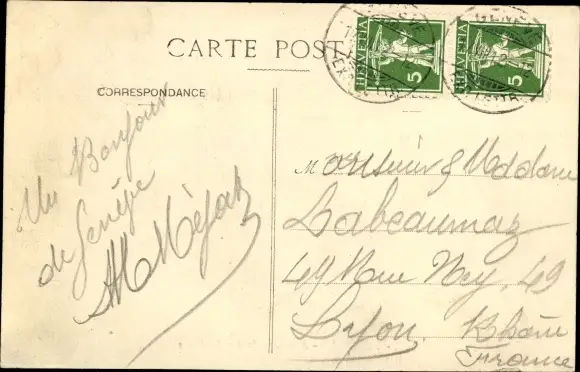 CARTE POST
HELVETIA 5
HELVETIA 5
CORRESPONDANCE
Un Bonjour
de Genève
Monsieur & Madame
49 Rue Ney. 49
Lyon. Rhône
France